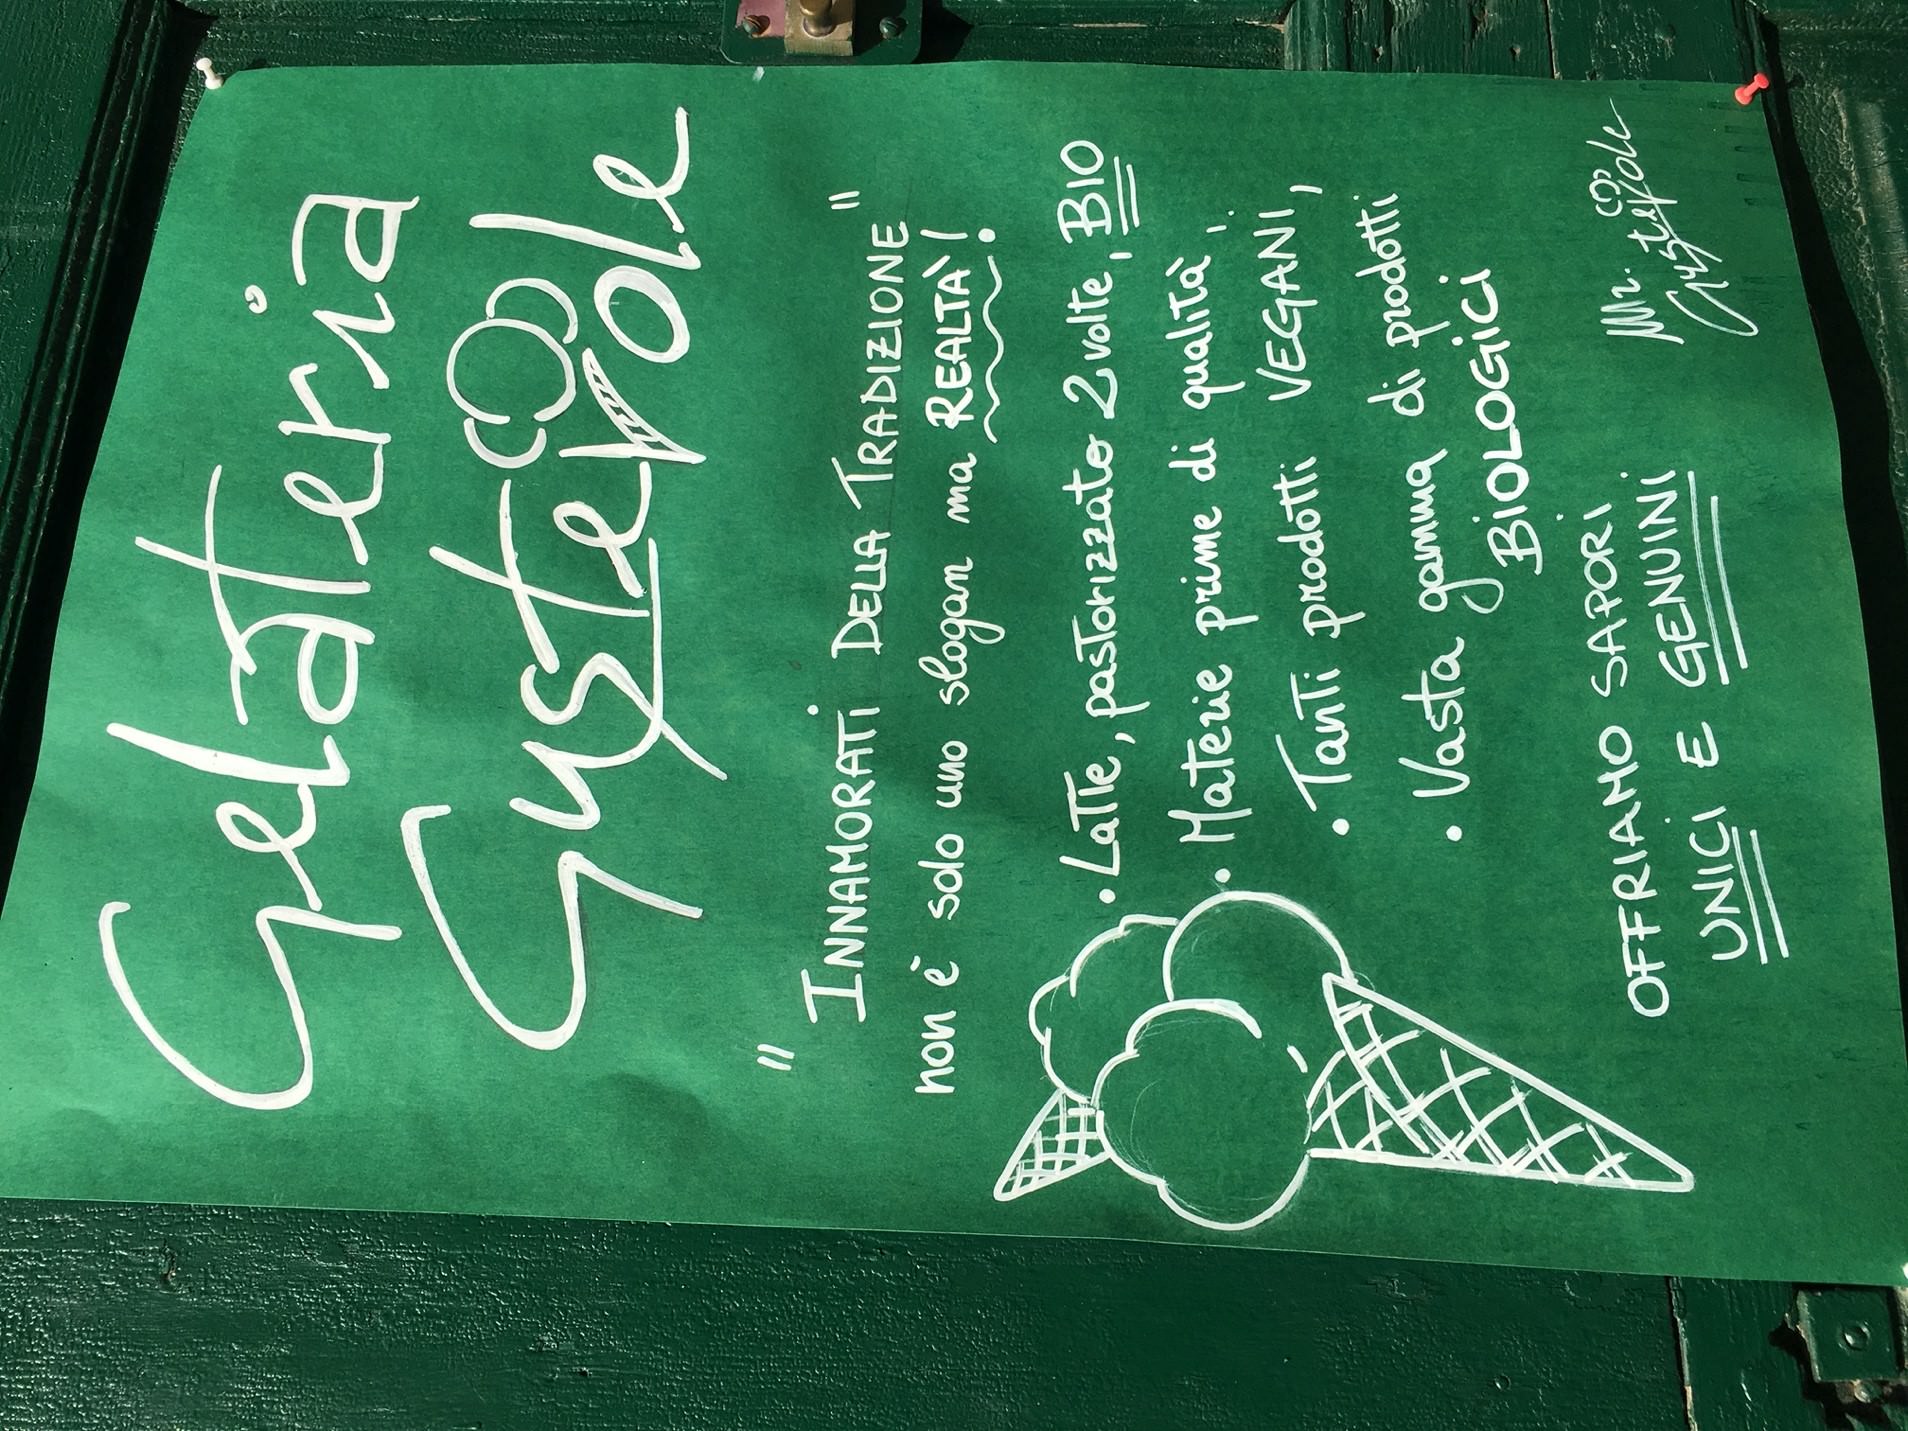 Gelateria
Gustevole
"INNAMORATI DELLA TRADIZIONE"
non è solo uno slogan ma REALTÀ!
• Latte, pastorizzato 2 volte, BIO
• Materie prime di qualità,
• Tanti prodotti VEGANI,
• Vasta gamma di prodotti
BIOLOGICI
OFFRIAMO SAPORI
UNICI E GENUINI
Mr.
Gustevole